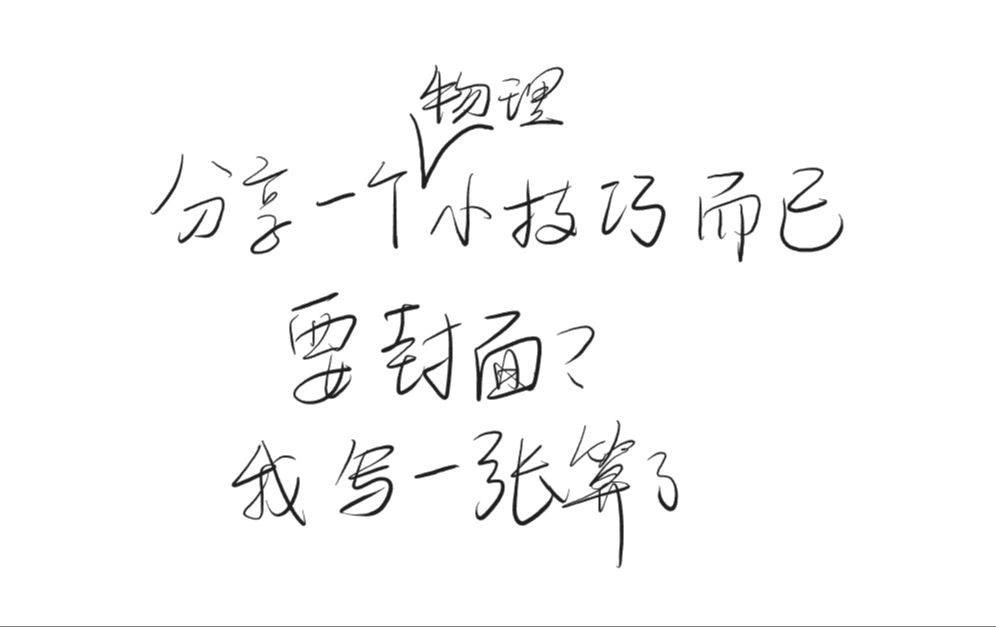 分享一个物理小技巧而已
要封面?
我写一张算了